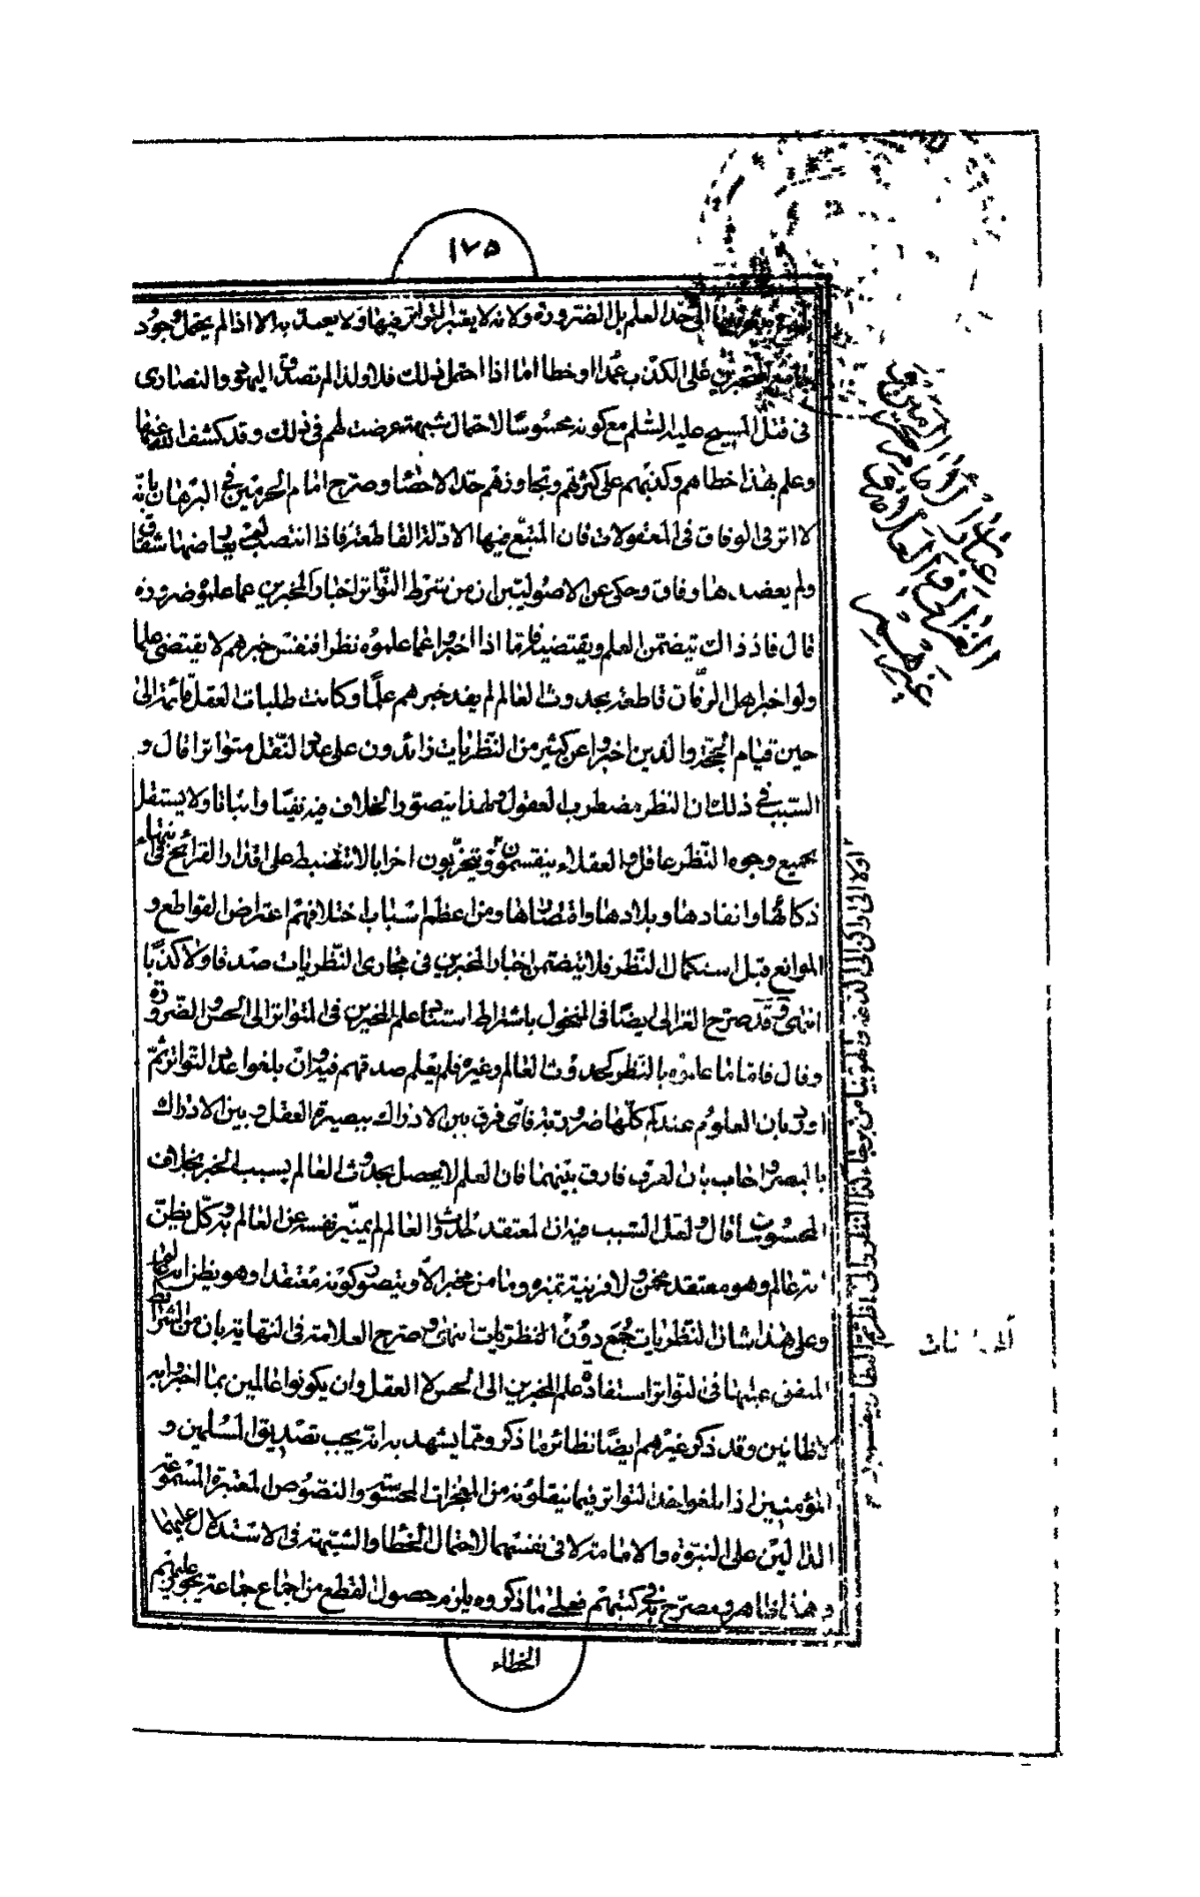 ١٧٥
الى حد العلم بل الضرورة ولانه لا يعتبر التواتر فيها ولا يعمل به الا اذا لم يحتمل وجود
على الكذب عمدا او خطا اما اذا احتمل ذلك فلا ولذا لم تصدق اليهود والنصارى
فى قتل المسيح عليه السلم مع كونه محسوسا لاحتمال شبهة عرضت لهم فى ذلك وقد كشف الله عنها
وعلم بهذا خطاهم وكذبهم على كثرتهم وتجاوزهم حد الاحصاء وصرح امام الحرمين فى البرهان بانه
لا اثر فى الوفاق فى المعقولات فان المتبع فيها الادلة القاطعة فاذا انتصبت لم يعارضها شقاق
ولم يعضدها وفاق وحكى عن الاصوليين ان من شرط التواتر اخبار المخبرين عما علموه ضرورة
قال فاذ ذاك يتضمن العلم ويقتضيه فاما اذا اخبروا عما علموه نظرا فنفس خبرهم لا يقتضى علما
ولو اخبر اهل الزمان قاطعة بحدوث العالم لم يفد خبرهم علما وكانت طلبات العقل قائمة الى
حين قيام الحجة والذين اخبروا عن كثير من النظريات زائدون على عدد النقل متواترا قال و
السبب فى ذلك ان النظر مضطرب العقول ولهذا يتصور الخلاف فيه نفيا واثباتا ولا يستقل
بجميع وجوه النظر عاقل والعقلاء ينقسمون ويتحزبون احزابا لا تنضبط على اقدار القرائح فى
ذكائها وانقادها وبلادها واقتصادها ومن اعظم اسباب اختلافهم اعتراض القواطع و
الموانع قبل استكمال النظر فلا يتضمن اخبار المخبرين فى مجارى النظريات صدقا ولا كذبا
انتهى وقد صرح الغزالى ايضا فى المنخول باشتراط استناد علم المخبرين فى المتواتر الى الحس والضرورة
وقال فاما ما علموه بالنظر كحدوث العالم وغيره فلم يعلم صدقهم فيه وان بلغوا عدد التواتر ثم
اورد بان العلوم عندكم كلها ضرورية فاى فرق بين الادراك ببصيرة العقل وبين الادراك
بالبصر واجاب بان العرف فارق بينهما فان العلم لا يحصل بحدوث العالم بسبب الخبر بخلاف
المحسوسات قال ولعل السبب فيه ان المعتقد لحدوث العالم لم يميز نفسه عن العالم به وكل يظن
انه عالم وهو معتقد مخمن ولا قرينة تميزه وما من مخبر الا ويتصور كونه معتقدا وهو يظن انه
وعلى هذا شان النظريات جمع دون النظريات انتهى وصرح العلامة فى النهاية بان من الشرائط
المتفق عليها فى التواتر استفادة علم المخبرين الى الحس لا العقل وان يكونوا عالمين بما اخبروا به
لا ظانين وقد ذكر غيرهم ايضا نظائر ما ذكر ومما يشهد به انه يجب تصديق المسلمين و
المؤمنين اذا بلغوا حد التواتر فيما ينقلونه من المعجزات المحسوسة والنصوص المعتبرة المسموعة
الدالين على النبوة والامامة لا فى نفسهما لاحتمال الخطا والشبهة فى الاستدلال عليهما
وهذا ظاهر ومصرح به فى كتبهم فعلى ما ذكروه يلزم حصول القطع من اجماع جماعة يجوز عليهم
الخطاء
غيرهم